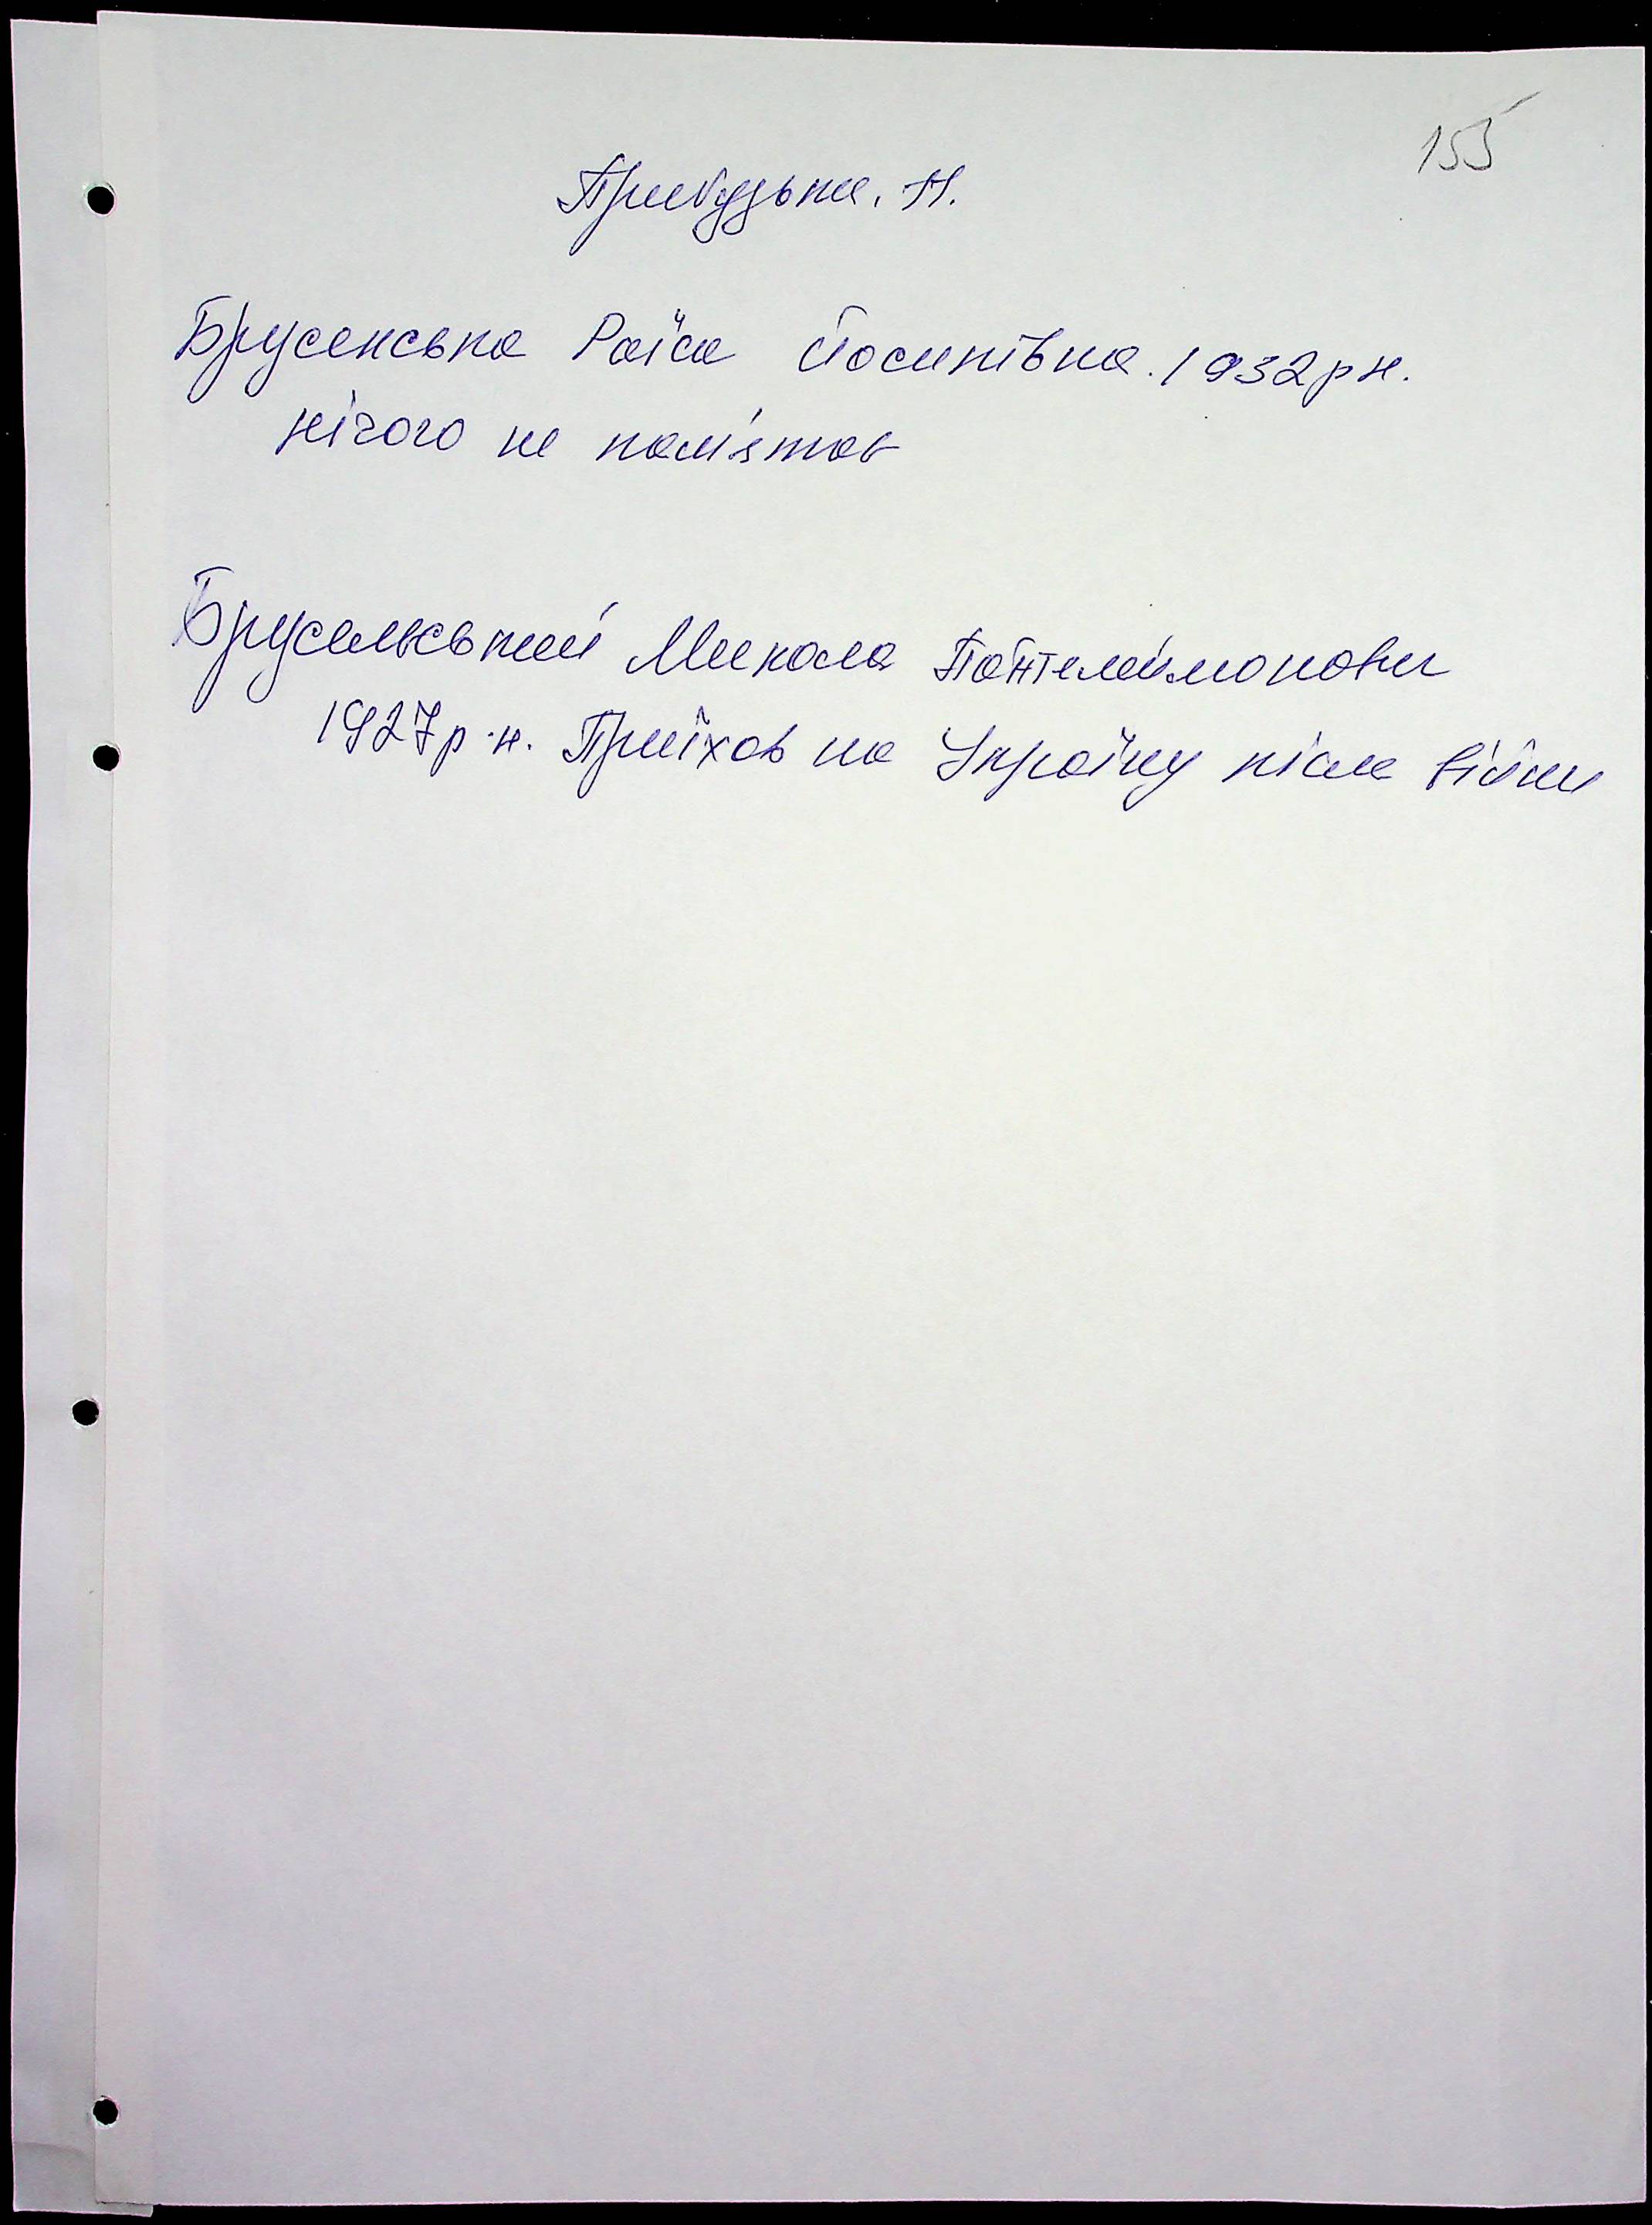 155
Прибузька. Н.
Брусенська Раїса Йосипівна. 1932 р н.
нічого не пам'ятає
Брусенський Микола Пантелеймонови
1927 р. н. Приїхав на Україну після війни